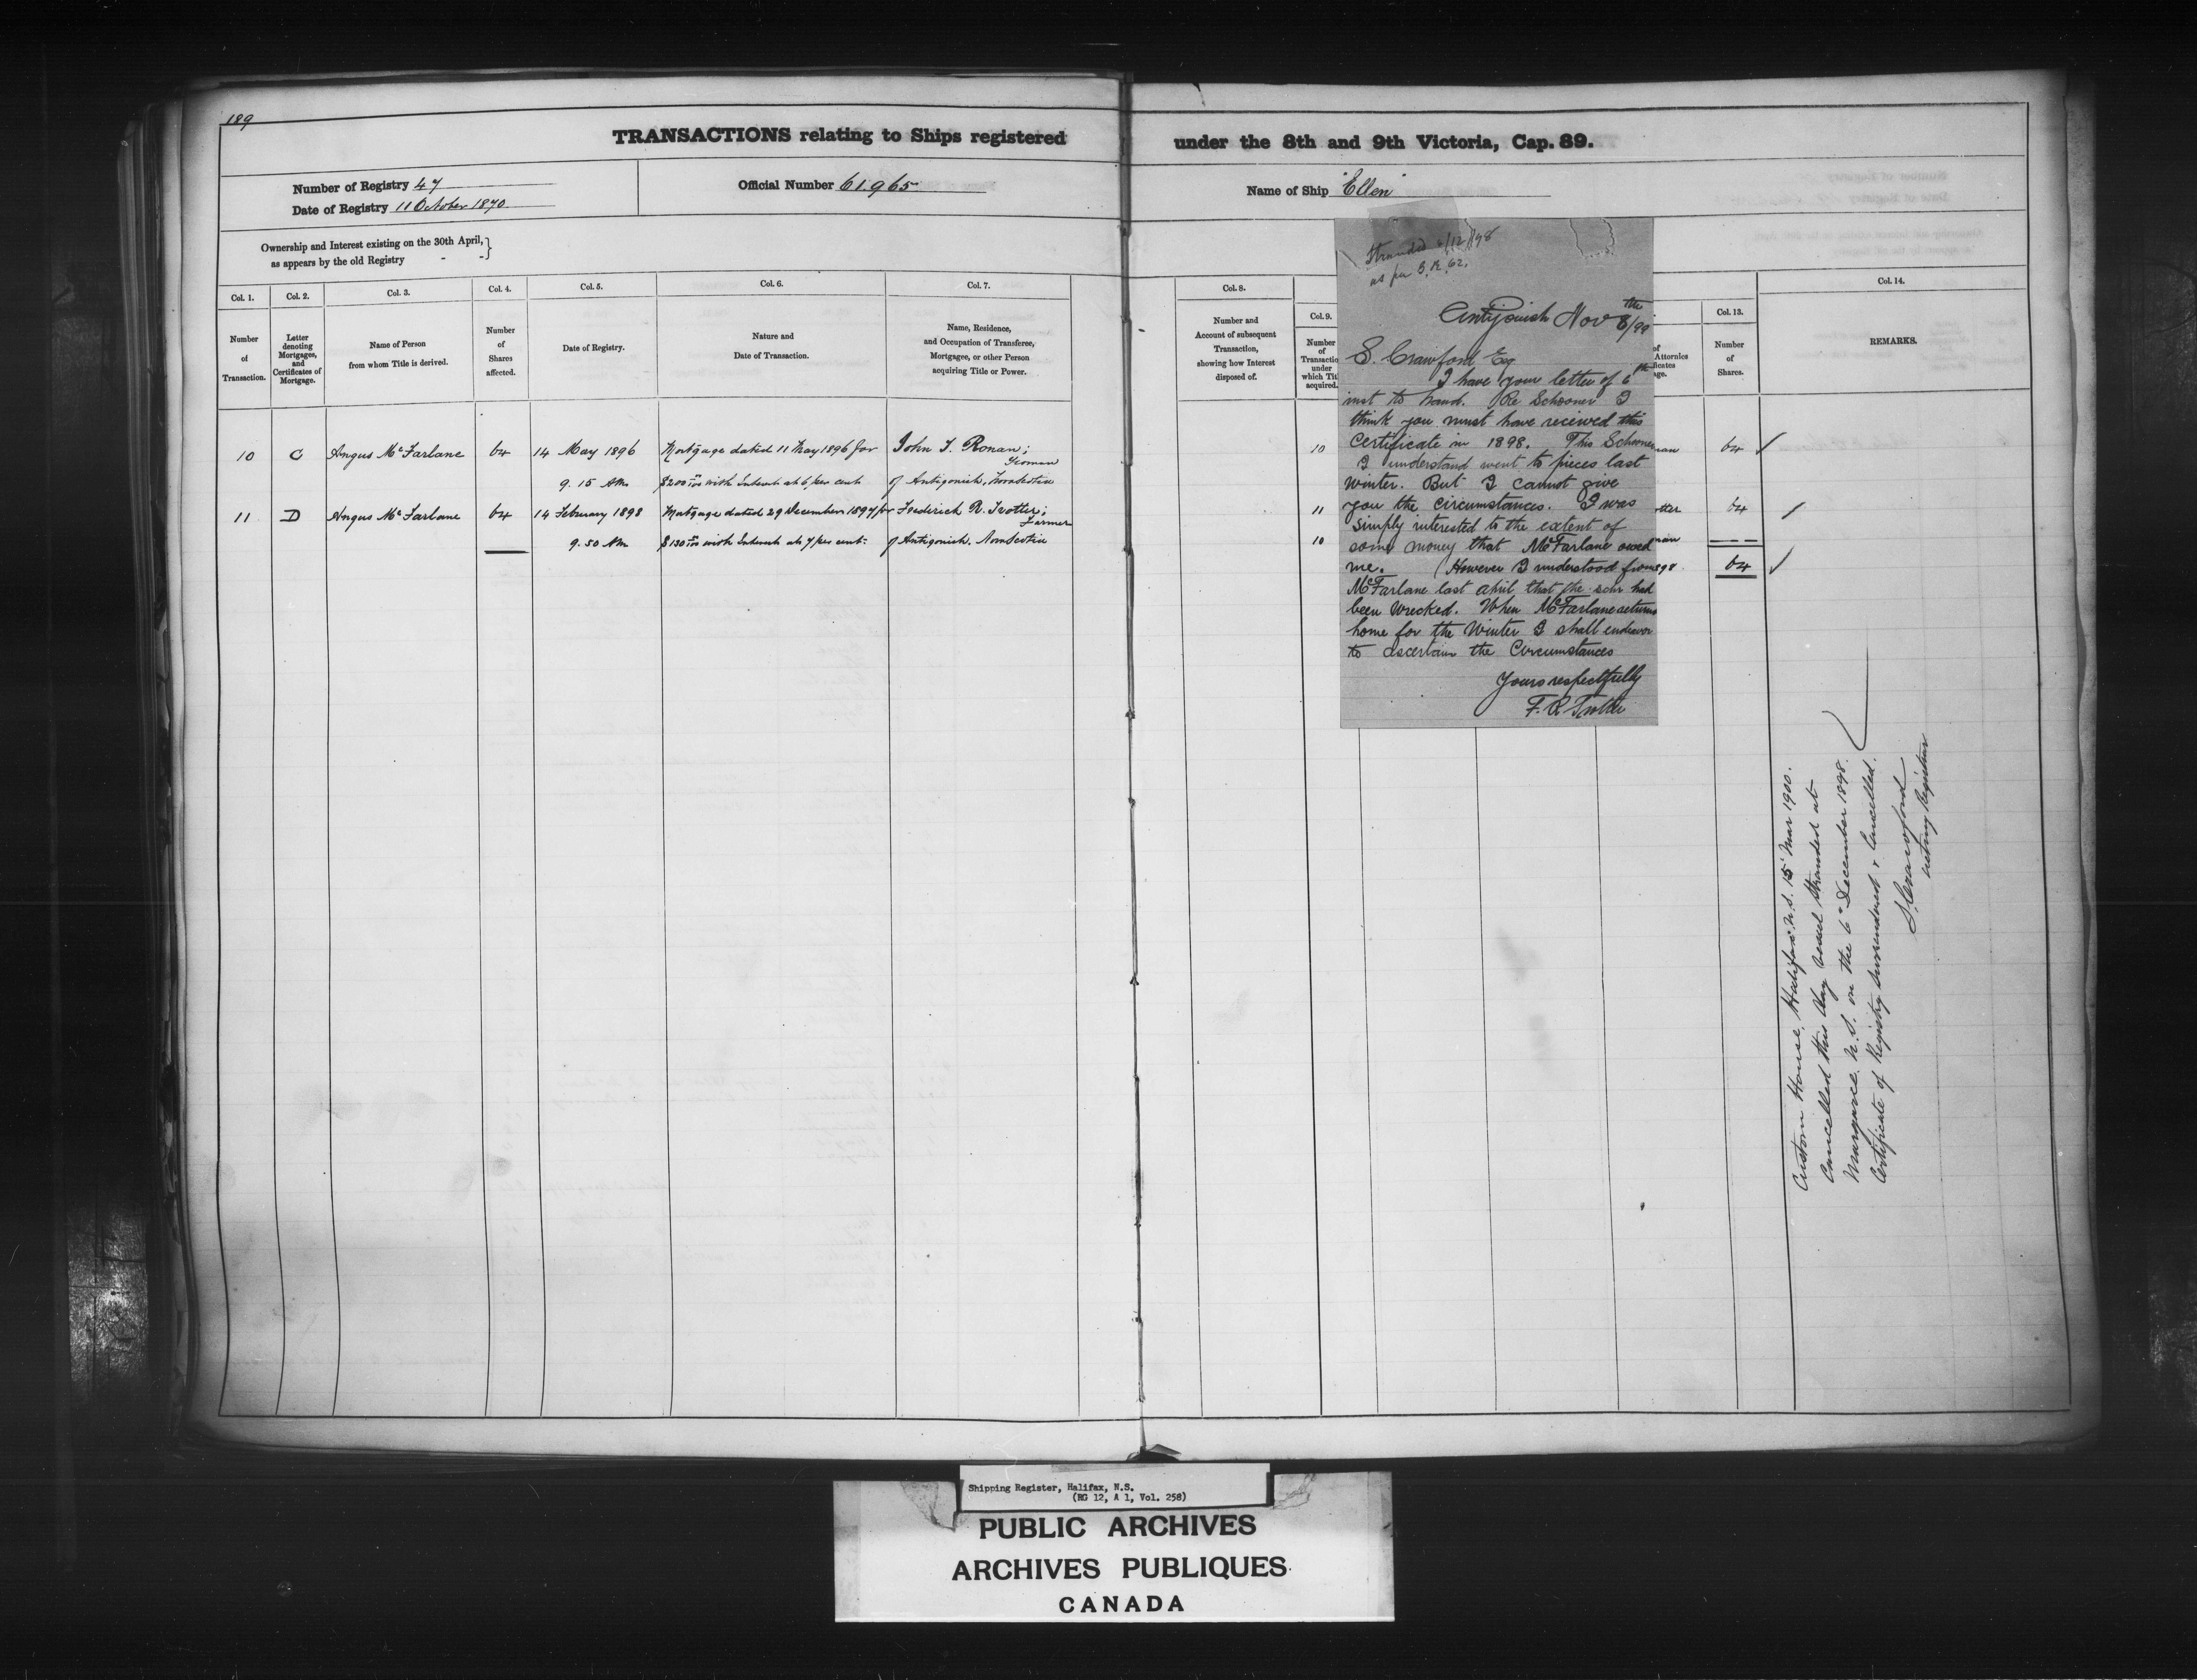 189
TRANSACTIONS relating to Ships registered under the 8th and 9th Victoria, Cap. 89.
Number of Registry 47
Date of Registry 11 October 1870
Official Number 61965
Name of Ship "Ellen"
Ownership and Interest existing on the 30th April,
as appears by the old Registry - -
Col. 1.
Number
of
Transaction.
Col. 2.
Letter
denoting
Mortgages,
and
Certificates of
Mortgage.
Col. 3.
Name of Person
from whom Title is derived.
Col. 4.
Number
of
Shares
affected.
Col. 5.
Date of Registry.
Col. 6.
Nature and
Date of Transaction.
Col. 7.
Name, Residence,
and Occupation of Transferee,
Mortgagee, or other Person
acquiring Title or Power.
10 C Angus McFarlane 64 14 May 1896 Mortgage dated 11 May 1896 for John J. Ronan;
Yeoman
9.15 AM $200 with Interest at 6 per cent of Antigonish, Nova Scotia
11 D Angus McFarlane 64 14 February 1898 Mortgage dated 29 December 1897 for Frederick R. Trotter;
Farmer
9.50 AM $130 with Interest at 7 per cent. of Antigonish, Nova Scotia
Col. 8.
Number and
Account of subsequent
Transaction,
showing how Interest
disposed of.
Col. 9.
Number
of
Transactio
under
which Titl
acquired.
10
11
10
Stranded 6/12/98
as per S.R. 62.
Antigonish Nov 8th/99
S. Crawford Esq
I have your letter of 6th
inst to hand. Re Schooner I
think you must have received this
Certificate in 1898. This Schooner
I understand went to pieces last
winter. But I cannot give
you the circumstances. I was
simply interested to the extent of
some money that McFarlane owed
me. However I understood from
McFarlane last april that the schr had
been wrecked. When McFarlane returns
home for the Winter I shall endeavor
to ascertain the Circumstances
Yours respectfully
F. R. Trotter
of
Attornies
ficates
age.
nan
tter
nan
898
Col. 13.
Number
of
Shares.
64
64
64
Col. 14.
REMARKS.
Custom House, Halifax N.S. 15 Mar 1900.
Cancelled this day vessel stranded at
Margaree N.S. on the 6th December 1898.
Certificate of Registry surrendered & Cancelled.
S. Crawford
Acting Registrar
Shipping Register, Halifax, N.S.
(RG 12, A 1, Vol. 258)
PUBLIC ARCHIVES
ARCHIVES PUBLIQUES
CANADA